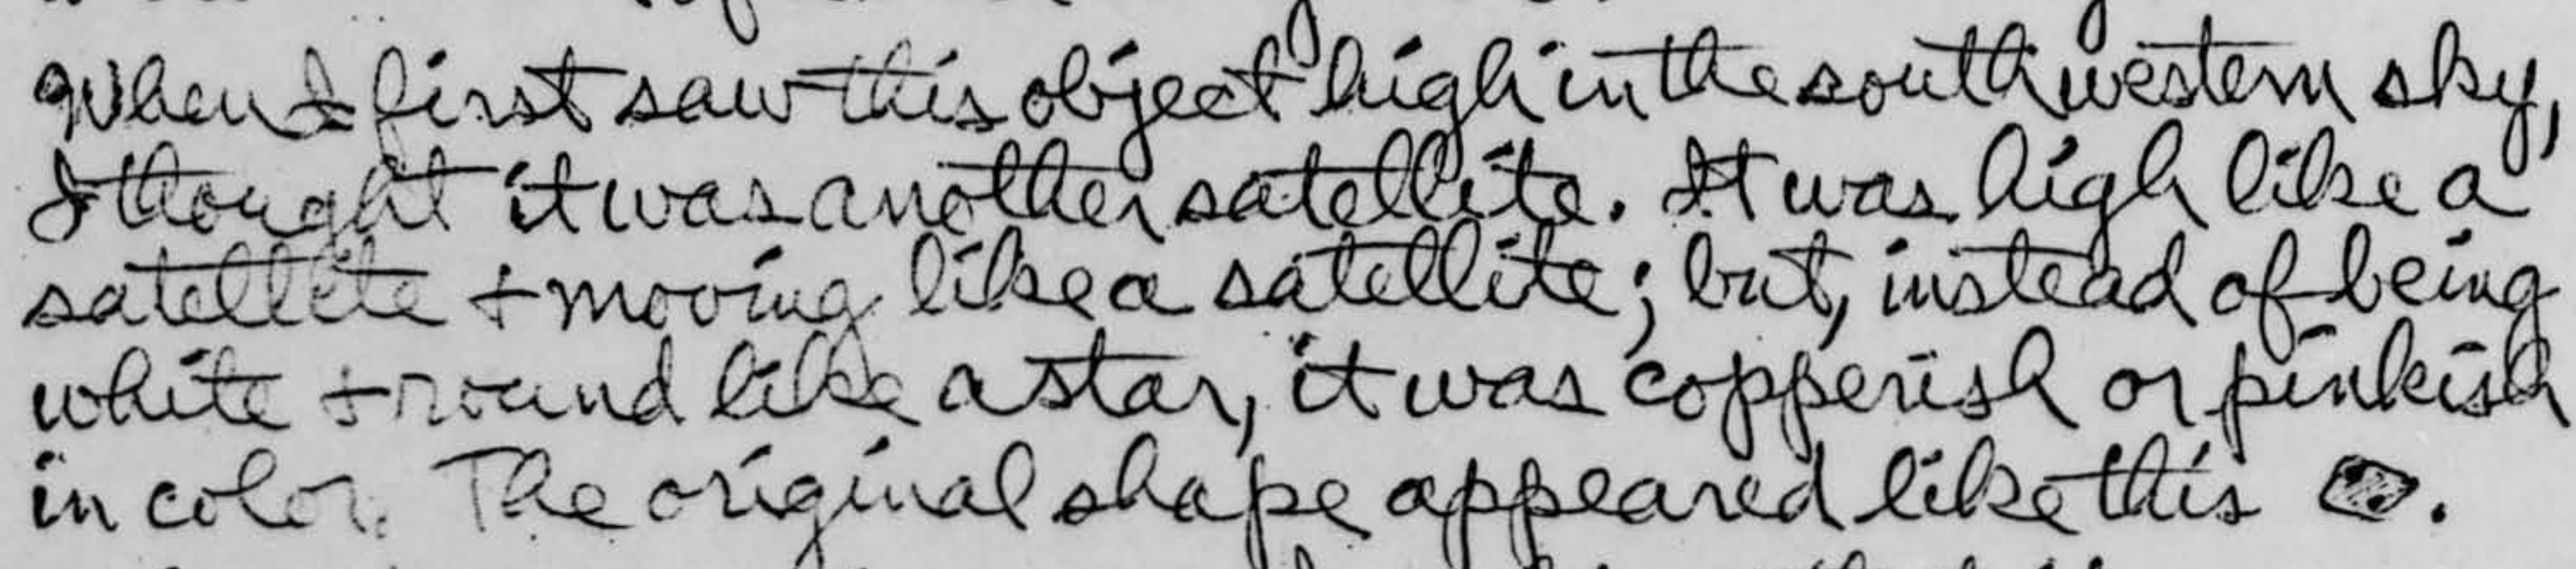 When I first saw this object high in the southwestern sky,
I thought it was another satellite. It was high like a
satellite + moving like a satellite; but, instead of being
white + round like a star, it was copperish or pinkish
in color. The original shape appeared like this .